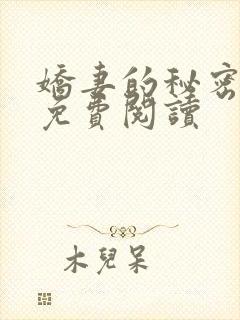 嬌妻的秘密
免費閱讀
木兒呆